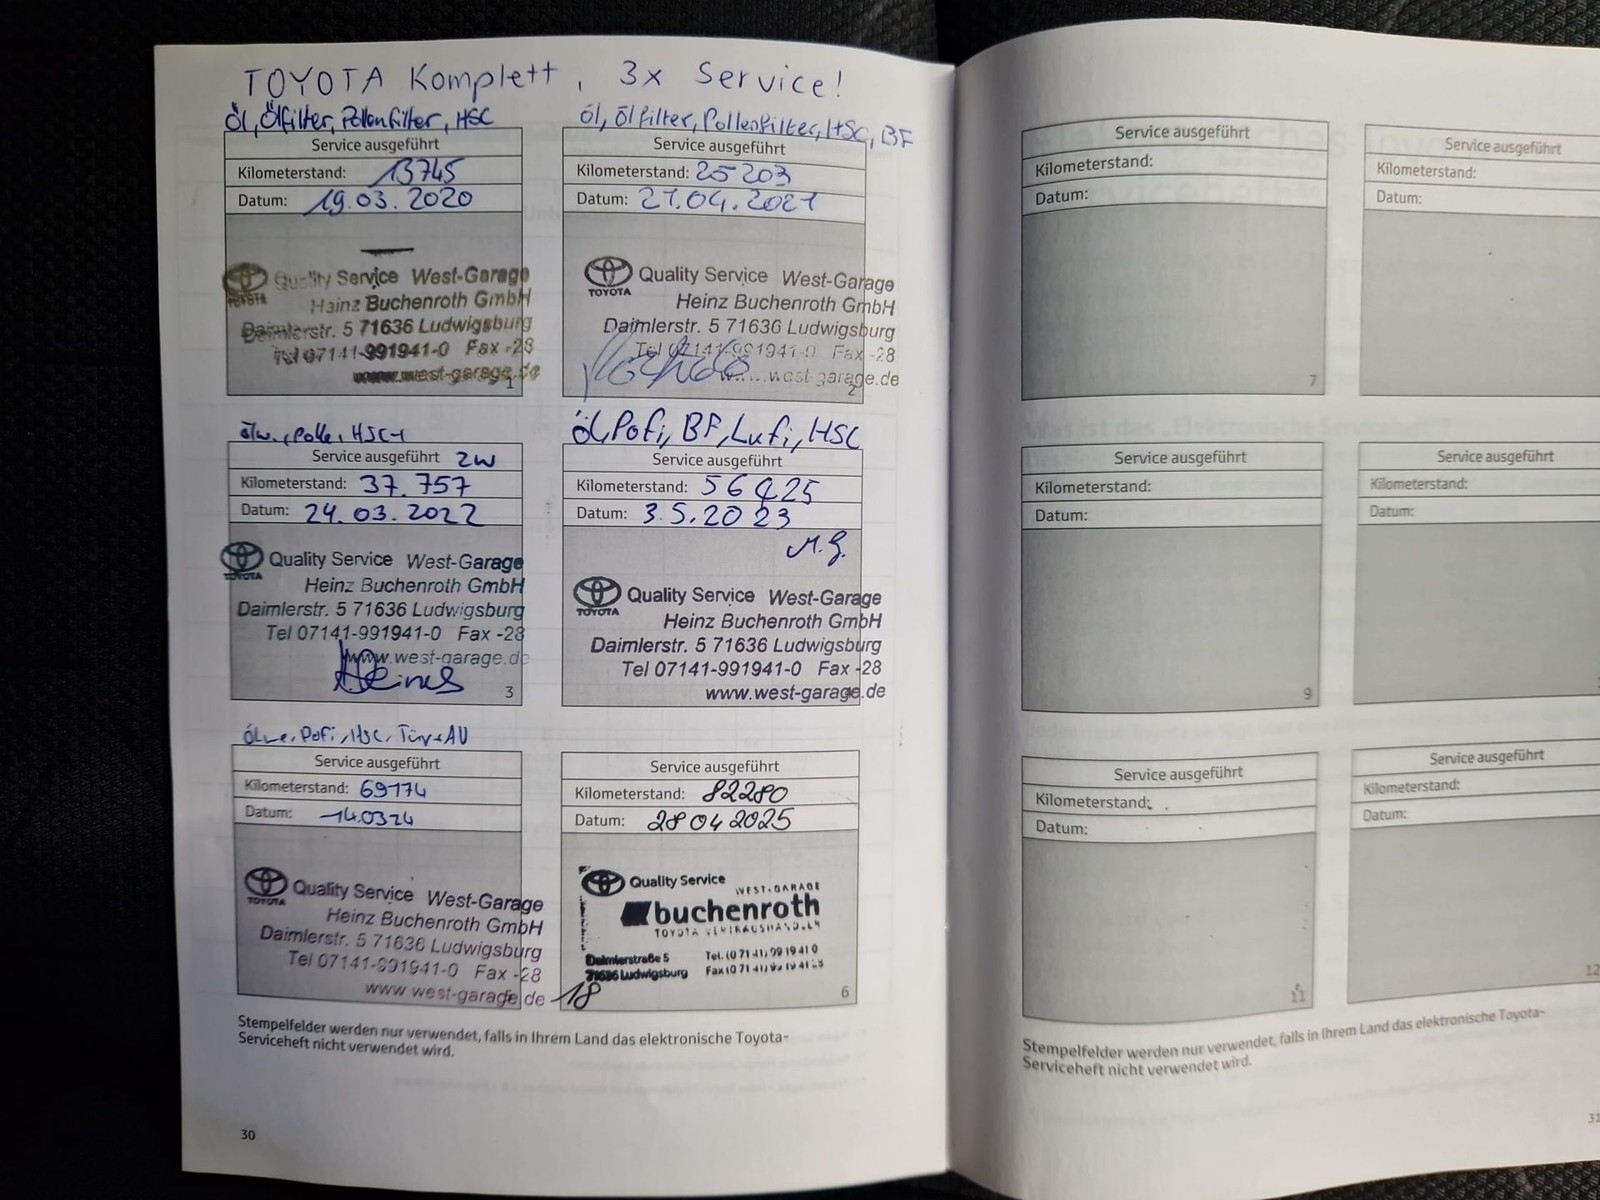 TOYOTA Komplett, 3x Service!
Öl, Ölfilter, Pollenfilter, HSC
Service ausgeführt
Kilometerstand: 13745
Datum: 19.03.2020
Quality Service West-Garage
TOYOTA
Heinz Buchenroth GmbH
Daimlerstr. 5 71636 Ludwigsburg
Tel 07141-991941-0 Fax -28
www.west-garage.de
1
Öl, Ölfilter, Pollenfilter, HSC, BF
Service ausgeführt
Kilometerstand: 25203
Datum: 21.04.2021
Quality Service West-Garage
TOYOTA
Heinz Buchenroth GmbH
Daimlerstr. 5 71636 Ludwigsburg
Tel 07141-991941-0 Fax -28
www.west-garage.de
2
Ölw., Polle, HSC
Service ausgeführt ZW
Kilometerstand: 37.757
Datum: 24.03.2022
Quality Service West-Garage
TOYOTA
Heinz Buchenroth GmbH
Daimlerstr. 5 71636 Ludwigsburg
Tel 07141-991941-0 Fax -28
www.west-garage.de
3
Öl, Pofi, BF, Lufi, HSC
Service ausgeführt
Kilometerstand: 56425
Datum: 3.5.2023
M.G.
Quality Service West-Garage
TOYOTA
Heinz Buchenroth GmbH
Daimlerstr. 5 71636 Ludwigsburg
Tel 07141-991941-0 Fax -28
www.west-garage.de
Pofi, HSC, Tüv+AU
Service ausgeführt
Kilometerstand: 69174
Datum: 14.0324
Quality Service West-Garage
TOYOTA
Heinz Buchenroth GmbH
Daimlerstr. 5 71636 Ludwigsburg
Tel 07141-991941-0 Fax -28
www west-garage.de
Service ausgeführt
Kilometerstand: 82280
Datum: 28 04 2025
Quality Service
WEST-GARAGE
buchenroth
TOYOTA VERTRAGSHÄNDLER
Daimlerstraße 5 Tel. (0 71 41) 99 19 41 0
71636 Ludwigsburg Fax (0 71 41) 99 19 41 28
18
6
Stempelfelder werden nur verwendet, falls in Ihrem Land das elektronische Toyota-
Serviceheft nicht verwendet wird.
30
Service ausgeführt
Kilometerstand:
Datum:
7
Service ausgeführt
Kilometerstand:
Datum:
Service ausgeführt
Kilometerstand:
Datum:
9
Service ausgeführt
Kilometerstand:
Datum:
Service ausgeführt
Kilometerstand:
Datum:
11
Service ausgeführt
Kilometerstand:
Datum:
12
Stempelfelder werden nur verwendet, falls in Ihrem Land das elektronische Toyota-
Serviceheft nicht verwendet wird.
31